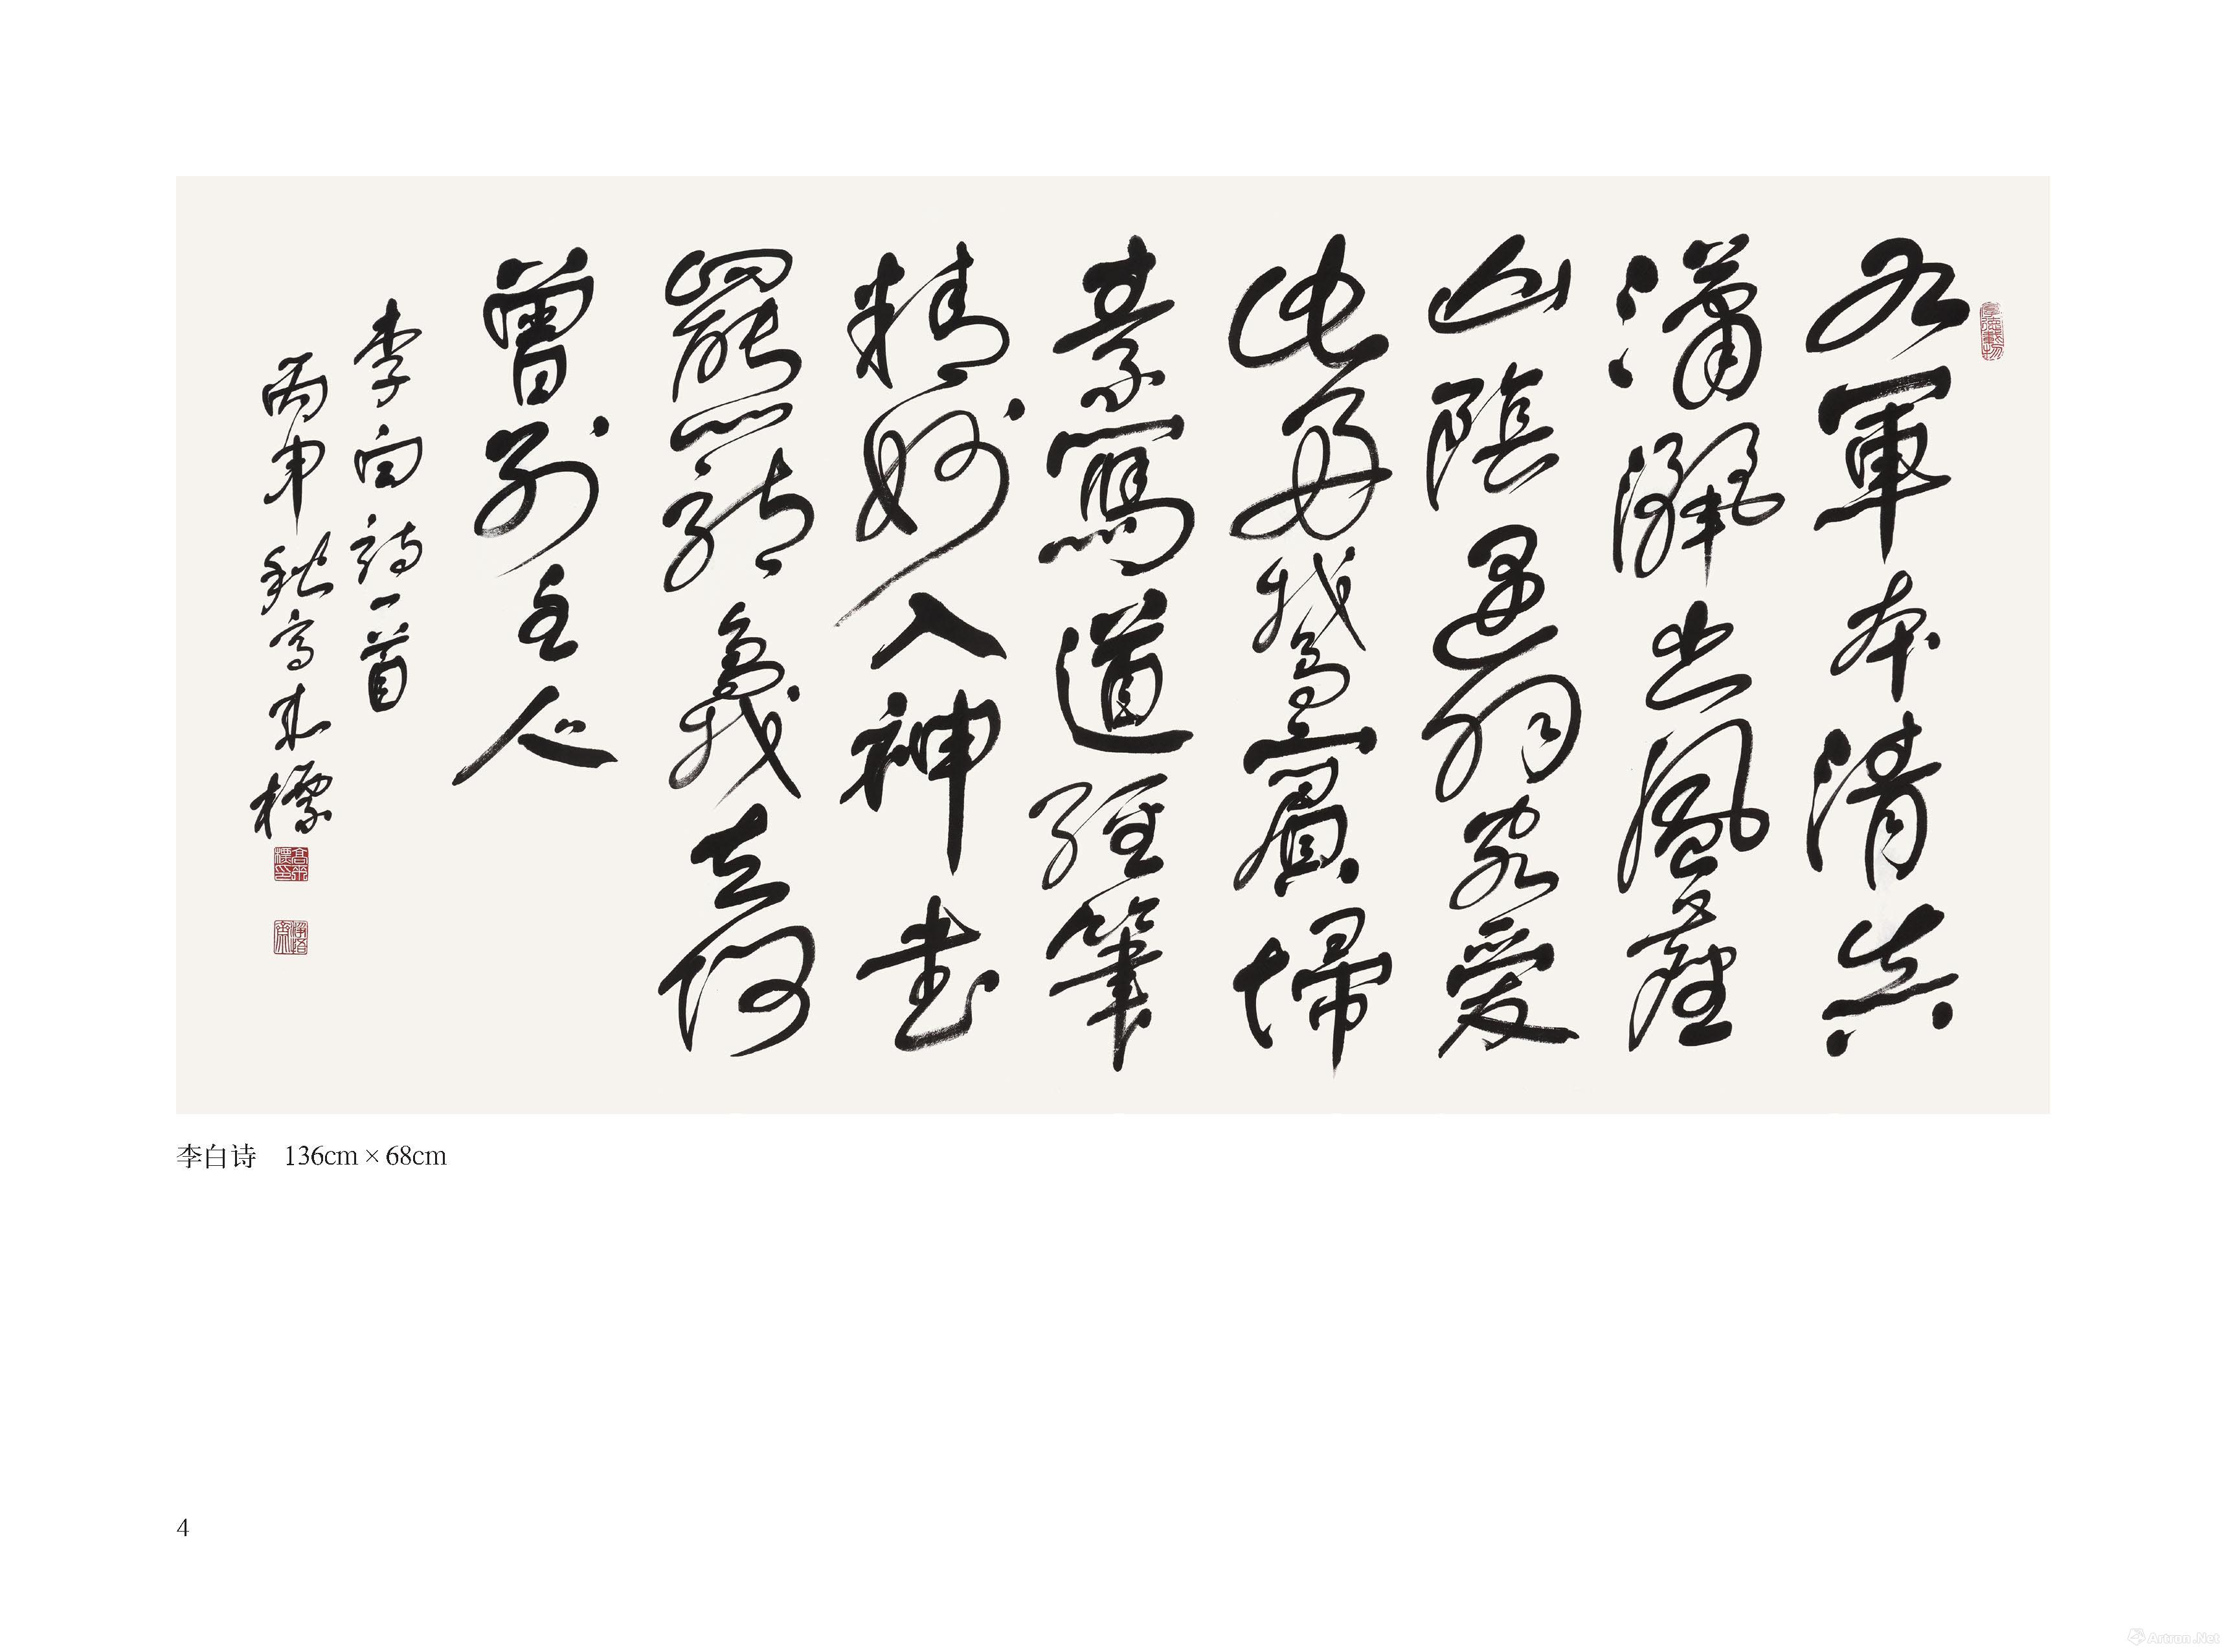 右軍本清真
瀟灑出風塵
山陰遇羽客愛
此好鵞賓掃
素寫道經筆
精妙入神書
罷籠鵞去何
曾別主人
李白詩一首
丙申秋高標
李白诗 136cm×68cm
4
Artron.Net